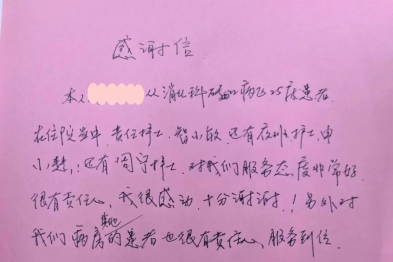 感谢信
本人 从消化科 病区25床患者
在住院当中,责任护士,智小敏,还有夜班护士申
小楚,还有周宁护士,对我们服务态度非常好
很有责任心,我很感动,十分谢谢!另外对
我们病房其他的患者也很有责任心,服务到位.